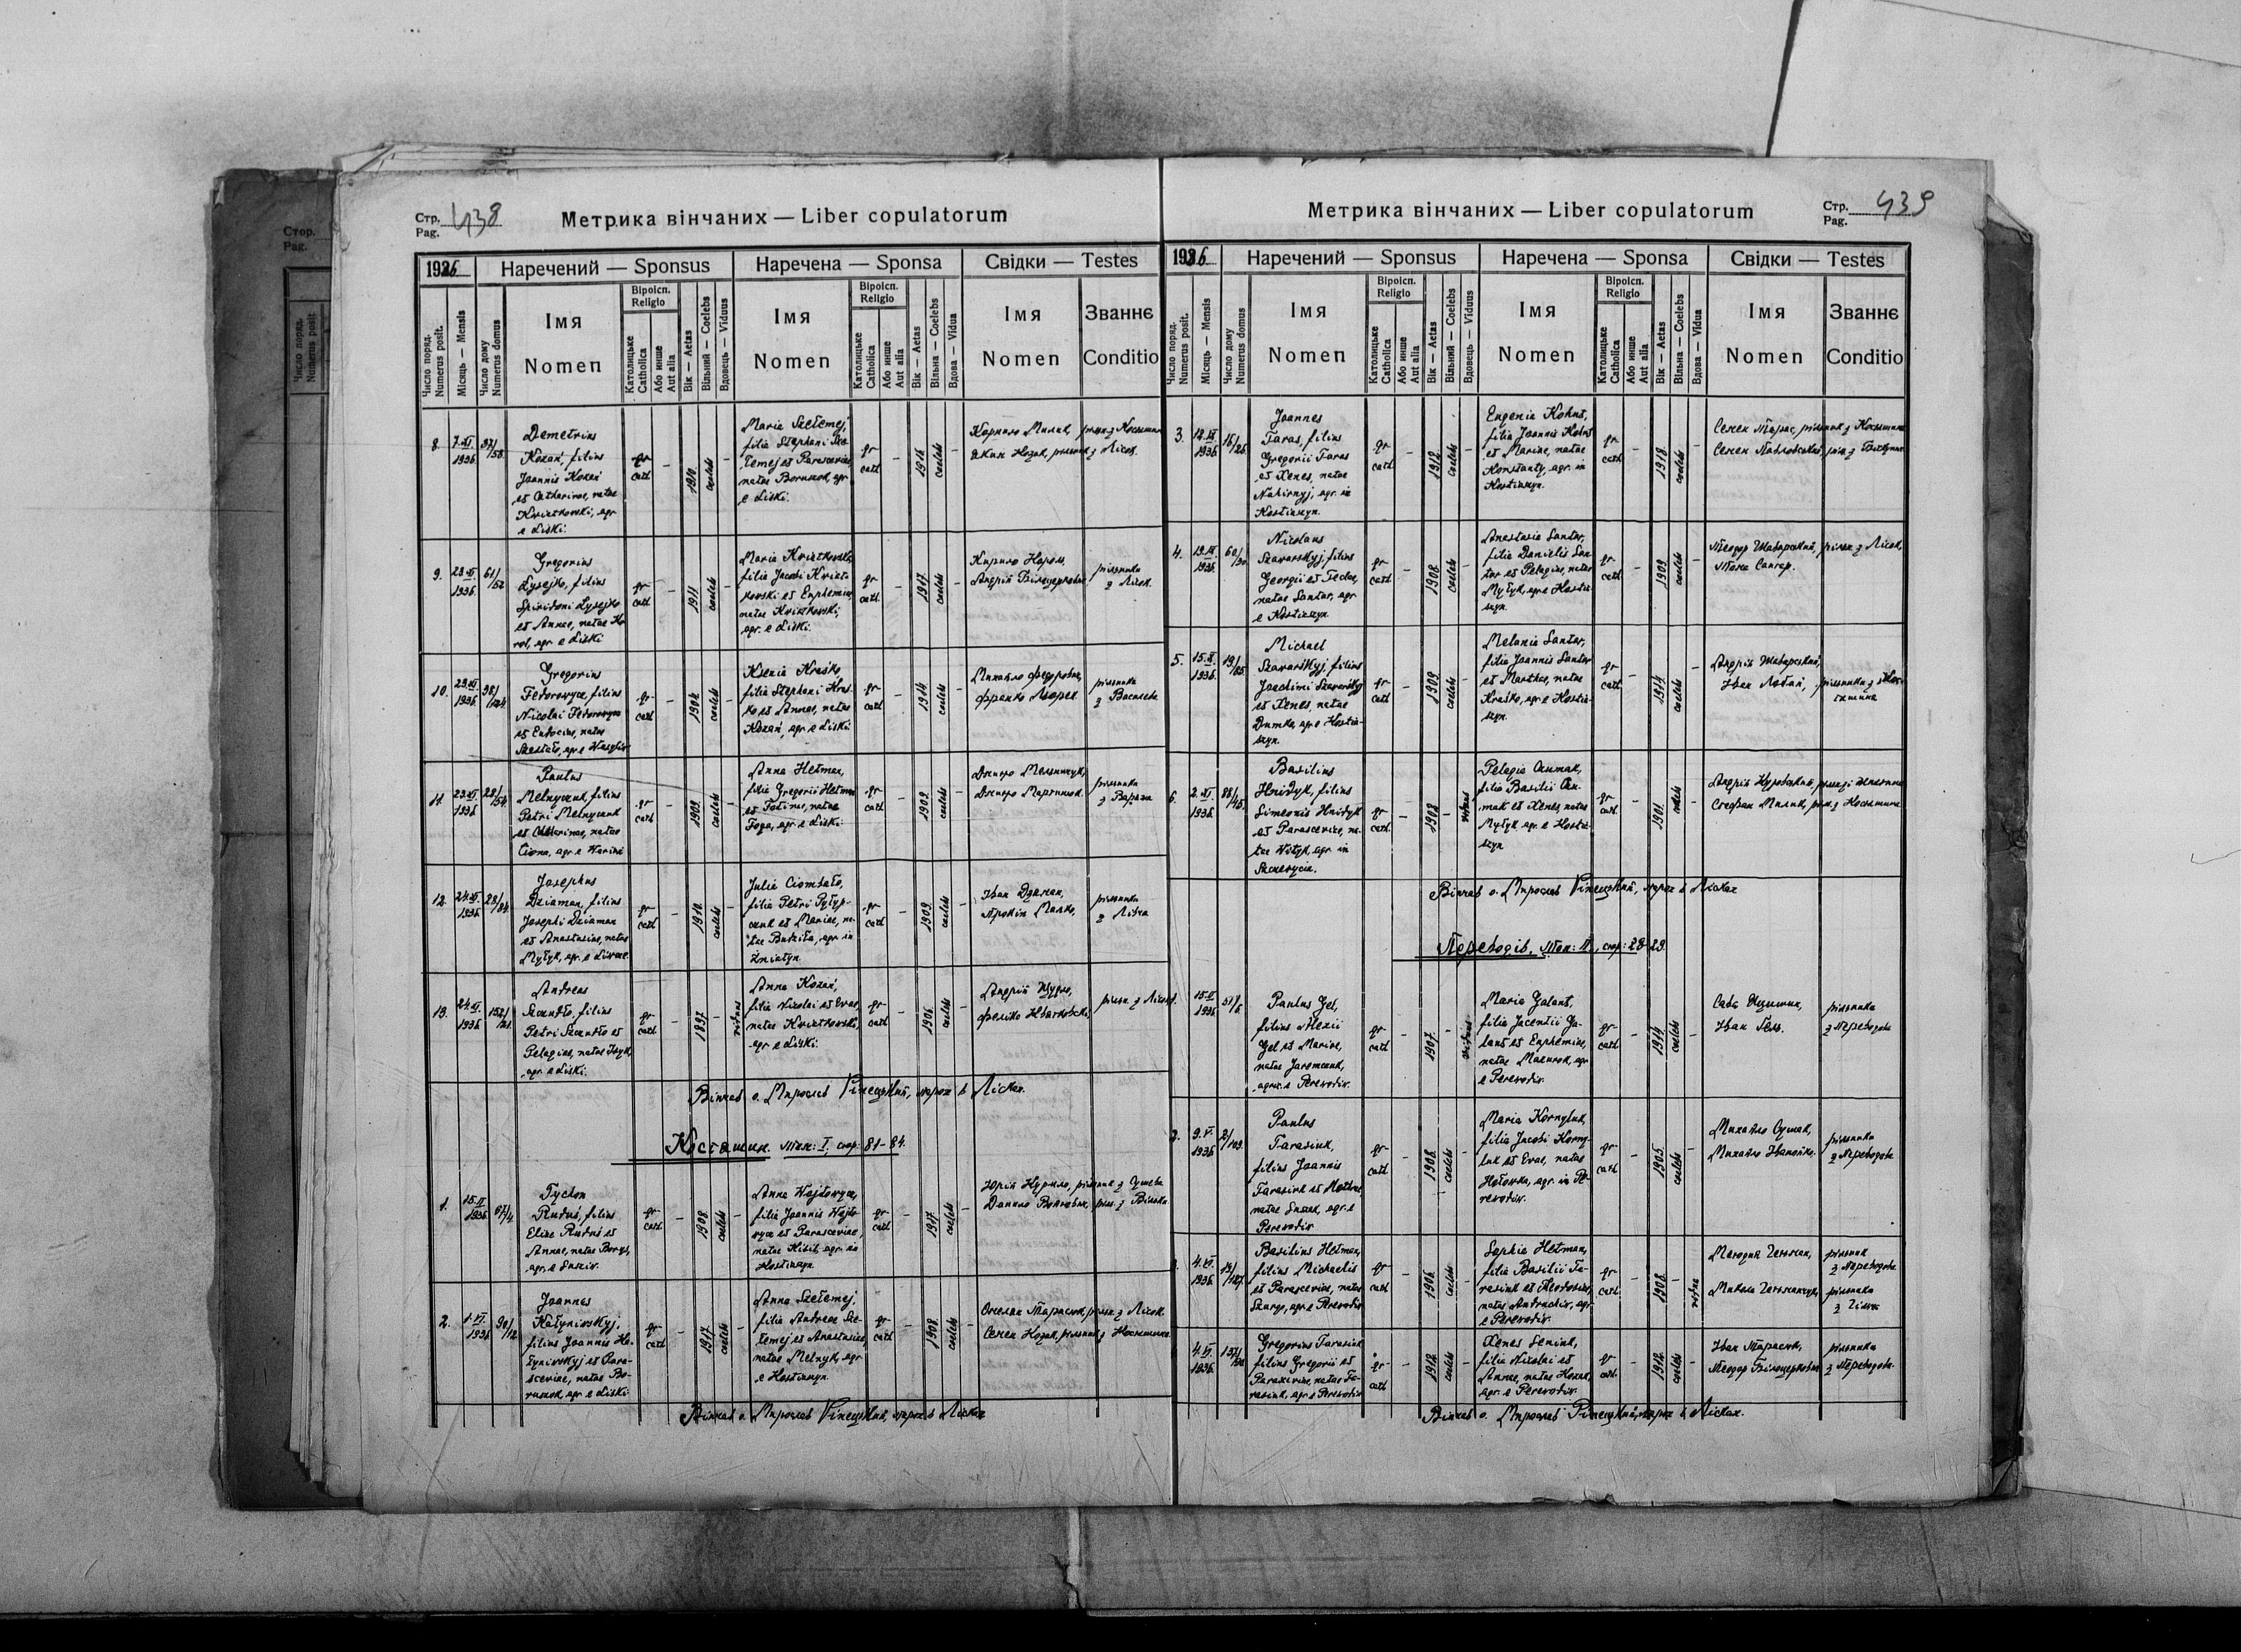 Стор.
Pag.
Число поряд.
Numerus posit
Стр.
Pag. 438
Метрика вінчаних — Liber copulatorum
1936
Наречений — Sponsus
Наречена — Sponsa
Свідки — Testes
Число поряд.
Numerus posit.
Місяць — Mensis
Число дому
Numerus domus
Імя
Nomen
Віроісп.
Religio
Католицьке
Catholica
Або инше
Aut alia
Вік — Aetas
Вільний — Coelebs
Вдовець — Viduus
Імя
Nomen
Віроісп.
Religio
Католицьке
Catholica
Або инше
Aut alia
Вік — Aetas
Вільна — Coelebs
Вдова — Vidua
Імя
Nomen
Званнє
Conditio
8.
7.XI
1936.
37/58
Demetrius
Kozań, filius
Joannis Kozań
et Catharinae, natae
Kwiatkowski, agr.
e Liski.
gr
cath
1910.
coelebs
Maria Szełemej,
filia Stephani Sze-
łemej et Parasceviae,
natae Bornszok, agr
e Liski.
gr
cath
1916.
coelebs
Корнило Милик, рільн. з Костяшина
Яким Козак, рільник з Лісок.
9.
23.XI
1936.
61/52
Gregorius
Lysejko, filius
Spiridoni Lysejko
et Annae, natae Ko
rol, agr. e Liski
gr
cath
1911.
coelebs
Maria Kwiatkowski,
filia Jacobi Kwiat-
kowski et Euphemiae,
natae Kwiatkowski,
agr. e Liski.
gr
cath
1917.
coelebs
Кирило Король
Андрій Білоцеркович
рільники
з Лісок.
10.
23.XI
1936.
38/124
Gregorius
Fedorowycz, filius
Nicolai Fedorowycz
et Eudociae, natae
Szestało, agr. e Wasyliw
gr
cath
1904.
coelebs
Ksenia Kraśko,
filia Stephani Kraś-
ko et Annae, natae
Kozań, agr. e Liski.
gr
cath
1914.
coelebs
Михайло Федорович,
Франко Люрел
рільники
з Василева
11.
23.XI
1936
28/54
Paulus
Melnyczuk, filius
Petri Melnyczuk
et Catharinae, natae
Ciona, agr. e Waręż
gr
cath
1909.
coelebs
Anna Hetman,
filia Gregorii Hetman
et Fotinae, natae
Foga, agr. e Liski.
gr
cath
1909.
coelebs
Дмитро Мельничук,
Дмитро Мартинюк.
рільники
з Варяжа
12.
24.XI.
1936
28/84
Josephus
Dziaman, filius
Josephi Dziaman
et Anastasiae, natae
Mytyk, agr. e Liwcze.
gr
cath
1910.
coelebs
Julia Ciombało,
filia Petri Pyłyp-
czuk et Mariae, na-
tae Budziła, agr. in
Żniatyn.
gr
cath
1909.
coelebs
Іван Дзяман,
Прокіп Малко,
рільники
з Лівча
13.
24.XI.
1936
Andreas
Szczudło, filius
Petri Szczudło et
Pelagiae, natae Isyk,
agr. e Liski.
gr
cath
1897.
viduus
Anna Kozań,
filia Nicolai et Evae,
natae Kwiatkowski,
agr. e Liski.
gr
cath
1906.
coelebs
Андрій Щудло,
Фелько Квятковскі,
рільн. з Лісок.
Вінчав о. Мирослав Ріпецький, парох в Лісках.
Костяшин. Том: I, стор: 81-84.
1.
15.II
1936.
67/4
Tychon
Ruduś, filius
Eliae Ruduś et
Annae, natae Borys,
agr. e Suszów.
gr
cath
1908.
coelebs
Anna Wojtowycz,
filia Joannis Wojto-
wycz et Parasceviae,
natae Kibit, agr. in
Kostiaszyn.
gr
cath
1917.
coelebs
Юрій Курило, рільник з Сушева
Данило Войтович, рільн. з
2.
1.VI.
1936.
90/12
Joannes
Kałyniwskyj,
filius Joannis Ka-
łyniwskyj et Para-
sceviae, natae Bo-
ruszok, agr. e Liski.
gr
cath
1914.
coelebs
Anna Szełemej,
filia Andreae Sze-
łemej et Anastasiae,
natae Melnyk, agr
e Kostiaszyn.
gr
cath
1908.
coelebs
Омелян Тарасюк, рільн. з Лісок
Семен Козак, рільник з Костяшина.
Вінчав о. Мирослав Ріпецький, парох в Лісках
Метрика вінчаних — Liber copulatorum
Стр.
Pag. 439
1936
Наречений — Sponsus
Наречена — Sponsa
Свідки — Testes
Число поряд.
Numerus posit.
Місяць — Mensis
Число дому
Numerus domus
Імя
Nomen
Віроісп.
Religio
Католицьке
Catholica
Або инше
Aut alia
Вік — Aetas
Вільний — Coelebs
Вдовець — Viduus
Імя
Nomen
Віроісп.
Religio
Католицьке
Catholica
Або инше
Aut alia
Вік — Aetas
Вільна — Coelebs
Вдова — Vidua
Імя
Nomen
Званнє
Conditio
3.
12.
1936.
16/26.
Joannes
Taras, filius
Gregorii Taras
et Xenes, natae
Nahirnyj, agr. in
Kostiaszyn.
gr
cath
1912.
coelebs
Eugenia Kohut,
filia Joannis Kohut
et Mariae, natae
Konstanty, agr. in
Kostiaszyn.
gr
cath
1918.
coelebs
Семен Тарас, рільник з Костяшина
Семен Павловський, рільн. з
4.
19.
1936.
60/30
Nicolaus
Szawarskyj, filius
Georgii et Teclae,
natae Santar, agr
e Kostiaszyn.
gr
cath
1908.
coelebs
Anastasia Santar,
filia Danielis San-
tar et Pelagiae, natae
Mytyk, agr. e Kostia-
szyn.
gr
cath
1909.
coelebs
Теодор Шаварський, рільн. з Лісок,
Тома Сантар.
5.
15.X.
1936.
19/85.
Michael
Szawarskyj, filius
Joachimi Szawarskyj
et Xenes, natae
Dumka, agr. e Kostia-
szyn.
gr
cath
1909.
coelebs
Melania Santar,
filia Joannis Santar
et Marthae, natae
Kraśko, agr. e Kostia-
szyn.
gr
cath
1914.
coelebs
Андрій Шаварський,
Іван Лобай, рільники з Кос-
тяшина
6.
2.XI.
1936.
Basilius
Hnidyk, filius
Simeonis Hnidyk
et Parasceviae, na-
tae Wityk, agr. in
gr
cath.
1902.
viduus
Pelagia Czumak,
filia Basilii Czu-
mak et Xenes, natae
Mytyk agr. e Kostia-
szyn
gr
cath.
1901.
coelebs
Андрій
Стефан Милик, рільн. з Костяшина
Вінчав о. Мирослав Ріпецький, парох в Лісках
Переводів. Том: II, стор: 28-29.
15.II
1936
51/6.
Paulus Gel,
filius Alexii
Gel et Mariae,
natae Jaremczuk,
agric. e Perewodiw.
gr
cath
1907.
viduus
Maria Galant,
filia Jacentii Ga-
lant et Euphemiae,
natae Mazurok, agr
e Perewodiw.
gr
cath
1914.
coelebs
Сава
Іван Гель.
рільники
з Переводова
2.
9.V.
1936.
2/109.
Paulus
Tarasiuk,
filius Joannis
Tarasiuk et Mothrae,
natae Suszek, agr. e
Perewodiw.
gr
cath
1908.
coelebs
Maria Kornyluk,
filia Jacobi Korny-
luk et Evae, natae
Hołowka, agr. in Pe-
rewodiw.
gr
cath
1905.
coelebs
Михайло Сушак,
Михайло Іванейко.
рільники
з Переводова
4.VI.
1936.
13/127.
Basilius Hetman,
filius Michaelis
et Parasceviae, natae
Szurgo, agr. e Perewodiw
gr
cath
1906.
coelebs
Sophia Hetman,
filia Basilii Ta-
rasiuk et Theodosiae,
natae Andruchiw, agr.
e Perewodiw.
gr
cath.
1908.
vidua
Методій Гетьман,
рільник
з Переводова
Микола Гетьманчук,
рільник
з
4.VI.
1936.
Gregorius Tarasiuk
filius Gregorii et
Parasceviae, natae Ta-
rasiuk, agr. e Perewodiw
gr
cath
1912.
coelebs
Xenes Seniuk,
filia Nicolai et
Annae, natae Kozak,
agr. e Perewodiw.
gr
cath.
1912.
coelebs
Іван Тарасюк,
Теодор Білоцеркович
рільники
з Переводова.
Вінчав о. Мирослав Ріпецький, парох в Лісках.